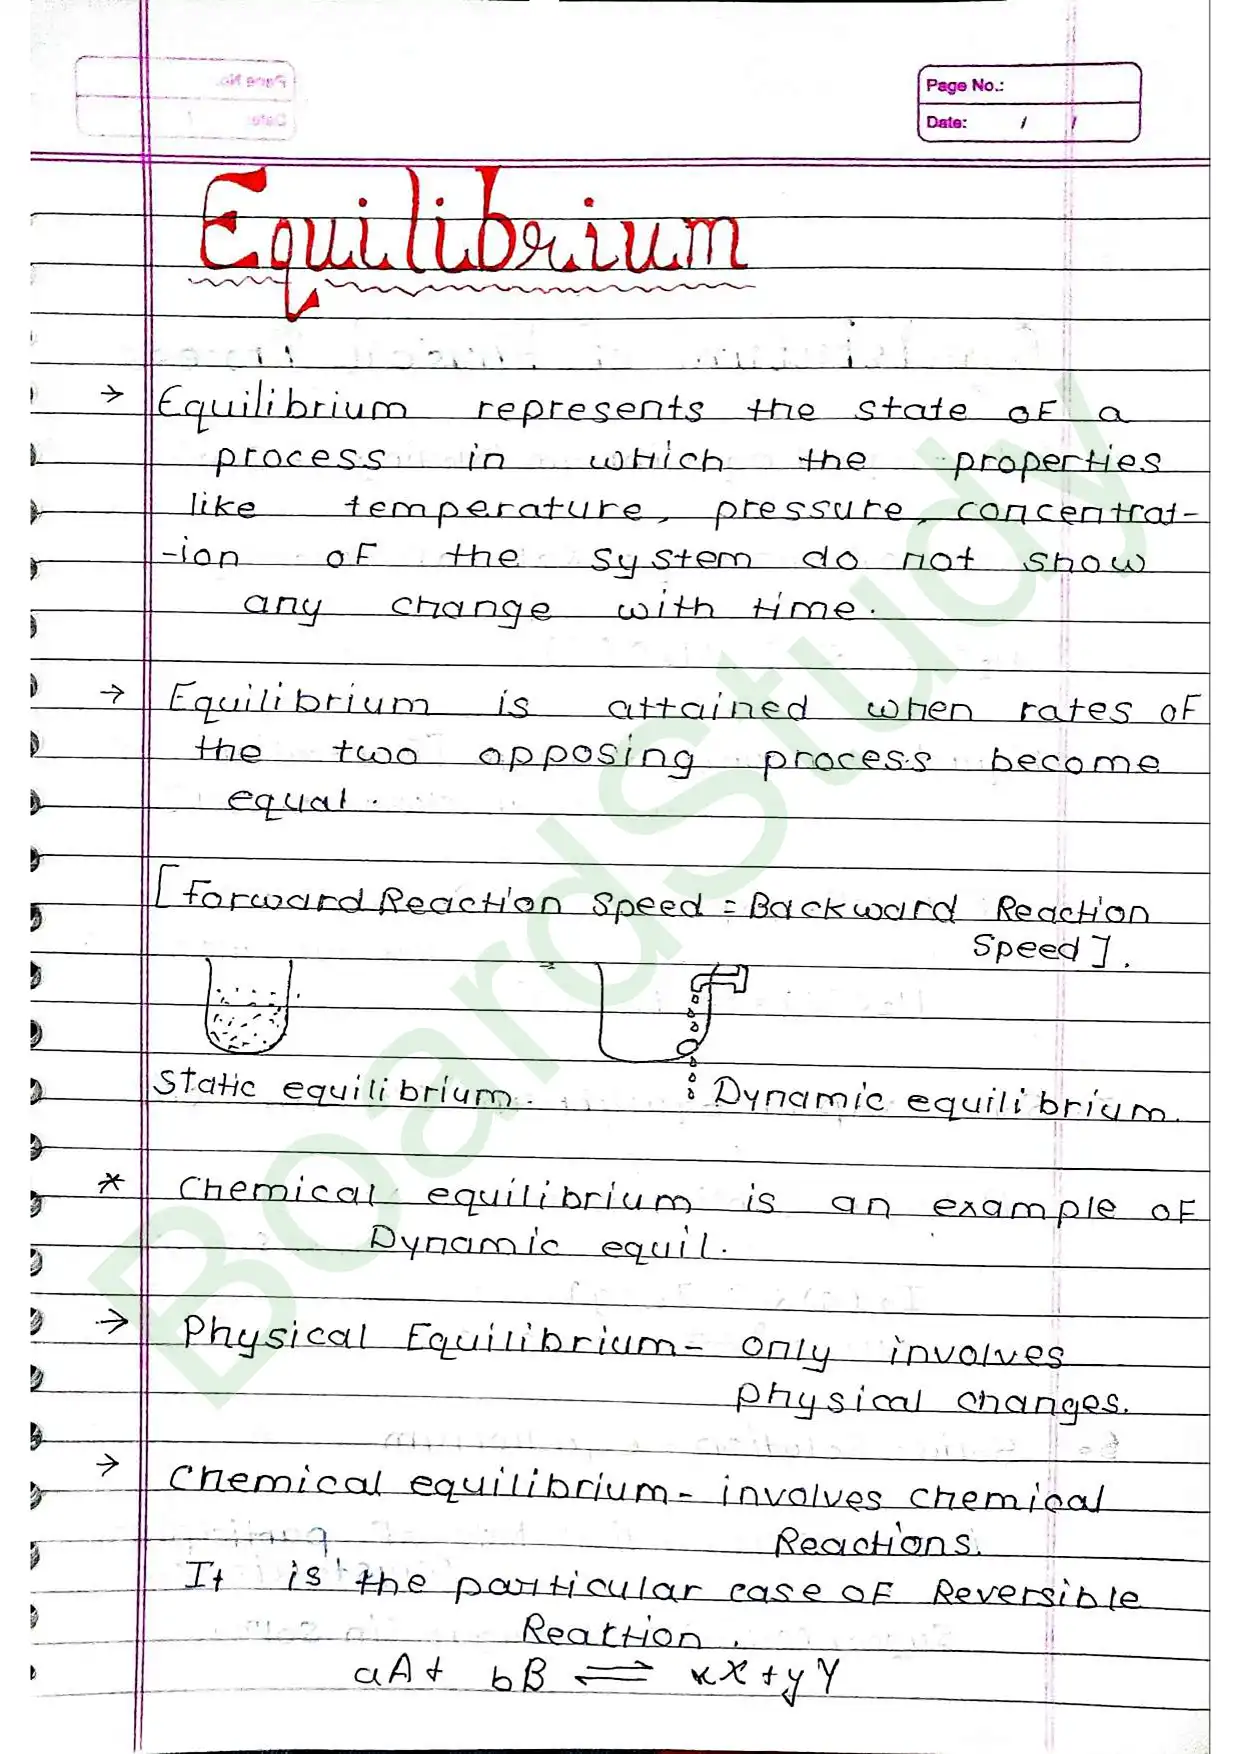 Page No.:
Date: / /
Equilibrium
→ Equilibrium represents the state of a
process in which the properties
like temperature, pressure, concentrat-
-ion of the system do not show
any change with time.
→ Equilibrium is attained when rates of
the two opposing process become
equal.
[Forward Reaction Speed = Backward Reaction
Speed].
Static equilibrium. Dynamic equilibrium.
* Chemical equilibrium is an example of
Dynamic equil.
→ Physical Equilibrium - only involves
physical changes.
→ Chemical equilibrium - involves chemical
Reactions.
It is the particular case of Reversible
Reaction.
aA + bB ⇌ xX + yY
BoardStudy